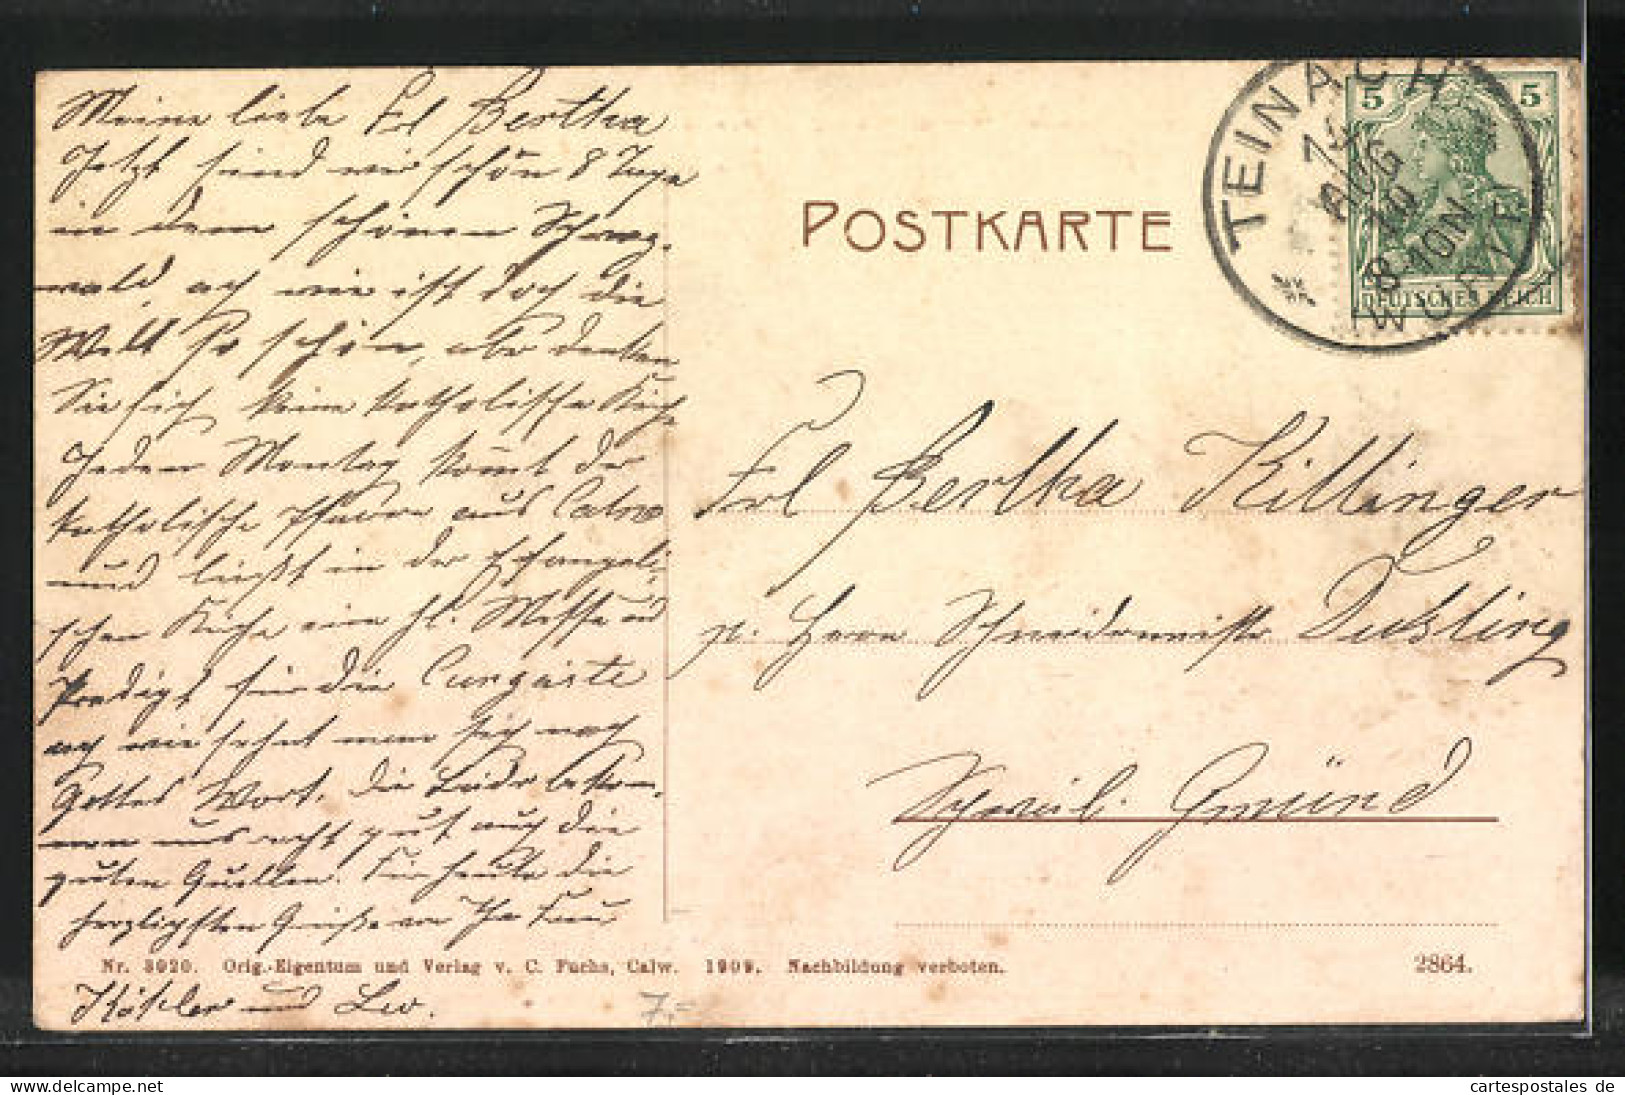 Meine liebe Frl Bertha
Jetzt sind wir schon 8 Tage
in dem schönen Schwarz-
wald, ach wie ist doch die
Welt so schön, aber denken
Sie sich keine katholische Kirche
Jeden Montag kommt der
katholische Pfarrer aus Calw
und ließt in der Efangeli-
schen Kirche eine hl. Messe und
Predigt für die Curgäste
ach wie sehnt man sich nach
Gottes Wort. Die Bäder bekom-
men uns recht gut auch die
guten Quellen. Für heute die
herzlichsten Grüße von Ihr
und
POSTKARTE
TEINACH
AUG
10
8-10N
WÜRTT
5 5
DEUTSCHES REICH
Frl Bertha Killinger
p. Herrn Schneidermeister
Schwäb. Gmünd
Nr. 3920. Orig.-Eigentum und Verlag v. C. Fuchs, Calw. 1909. Nachbildung verboten.
2864.
7.-
cartespostales de